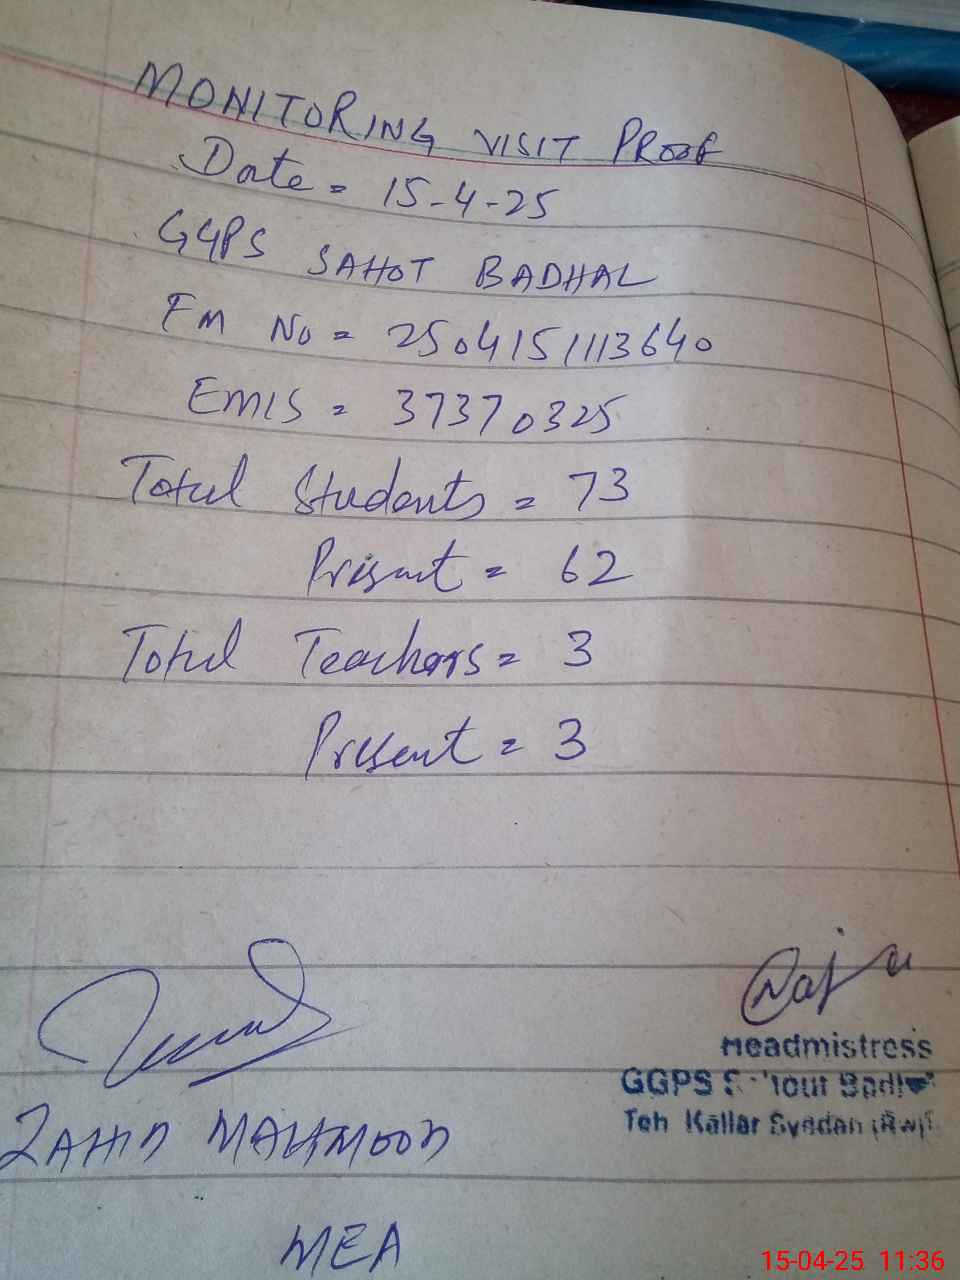 MONITORING VISIT PROOF
Date = 15-4-25
GGPS SAHOT BADHAL
FM No = 2504151113640
EMIS = 37370325
Total Students = 73
Present = 62
Total Teachers = 3
Present = 3
Headmistress
GGPS
Teh Kallar Syedan (Rwp)
ZAHID MAHMOOD
MEA
15-04-25 11:36